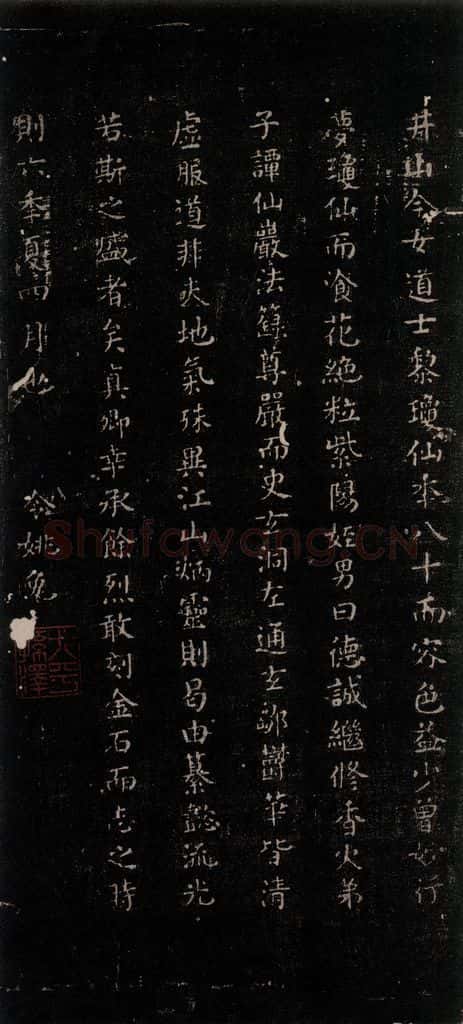 井山今女道士黎瓊仙年八十而容色益少曾妙行
夢瓊仙而飡花絶粒紫陽姪男曰德誠繼修香火弟
子譚仙巖法籙尊嚴而史玄洞左通玄鄒鬱華皆清
虛服道非夫地氣殊異江山炳靈則曷由纂懿流光
若斯之盛者矣真卿幸承餘烈敢刻金石而志之時
則六秊夏四月也
Shufawang.CN